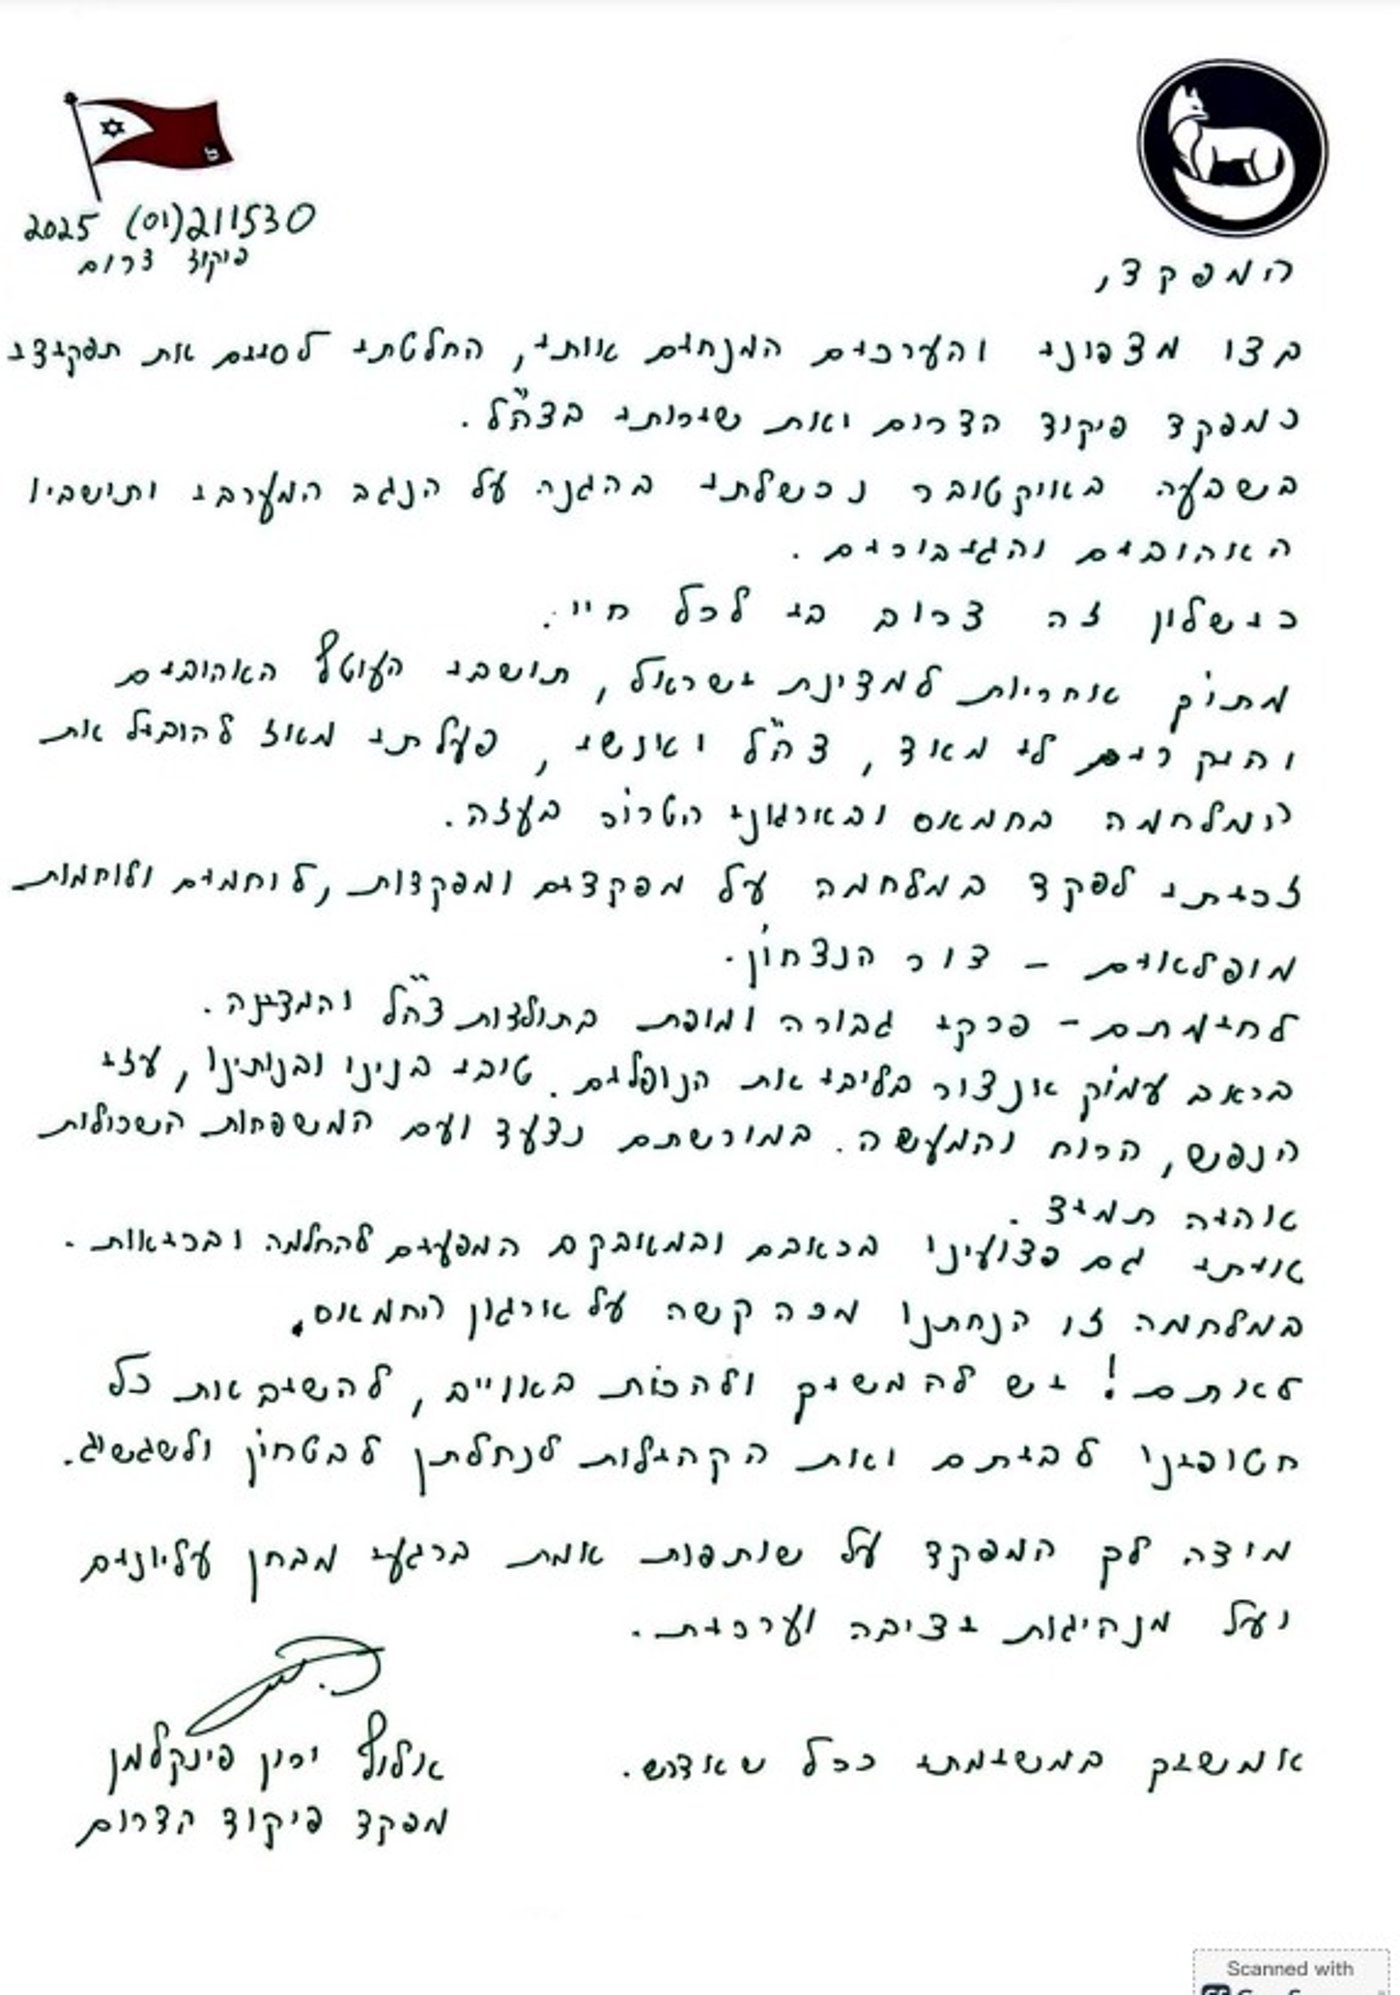 211530(01) 2025
פיקוד דרום
המפקד,
בצו מצפוני והערכים המנחים אותי, החלטתי לסיים את תפקידי
כמפקד פיקוד הדרום ואת שירותי בצה"ל.
בשבעה באוקטובר נכשלתי בהגנה על הנגב המערבי ותושביו
האהובים והגיבורים.
כישלון זה צרוב בי לכל חיי.
מתוך אחריות למדינת ישראל, תושבי העוטף האהובים
והיקרים לי מאד, צה"ל ואנשיי, פעלתי מאז להוביל את
המלחמה בחמאס ובארגוני הטרור בעזה.
זכיתי לפקד במלחמה על מפקדים ומפקדות, לוחמים ולוחמות
מופלאים – דור הנצחון.
לחימתם – פרקי גבורה ומופת בתולדות צה"ל והמדינה.
בכאב עמוק אנצור בליבי את הנופלים. טובי בנינו ובנותינו, עזי
הנפש, הרוח והמעשה. במורשתם נצעד ועם המשפחות השכולות
אהיה תמיד.
איתי גם פצועינו בכאבם ובמאבקם המפעים להחלמה ובריאות.
במלחמה זו הנחתנו מכה קשה על ארגון החמאס.
לא תם! יש להמשיך ולהכות באויים, להשיב את כל
חטופינו לביתם ואת הקהילות לנחלתן לבטחון ולשגשוג.
מודה לך המפקד על שותפות אמת ברגעי מבחן עליונים
ועל מנהיגות יציבה וערכית.
אמשיך במשימתי ככל שאדרש.
אלוף ירון פינקלמן
מפקד פיקוד הדרום
Scanned with